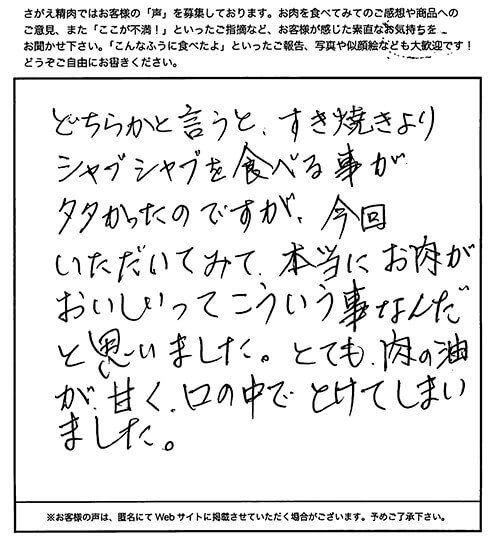 さがえ精肉ではお客様の「声」を募集しております。お肉を食べてみてのご感想や商品への
ご意見、また「ここが不満！」といったご指摘など、お客様が感じた素直なお気持ちを
お聞かせ下さい。「こんなふうに食べたよ」といったご報告、写真や似顔絵なども大歓迎です！
どうぞご自由にお書きください。
どちらかと言うと、すき焼きより
シャブシャブを食べる事が
タタかったのですが、今回
いただいてみて、本当にお肉が
おいしいってこういう事なんだ
と思いました。とても、肉の油
が、甘く、口の中でとけてしまい
ました。
※お客様の声は、匿名にてWebサイトに掲載させていただく場合がございます。予めご了承下さい。